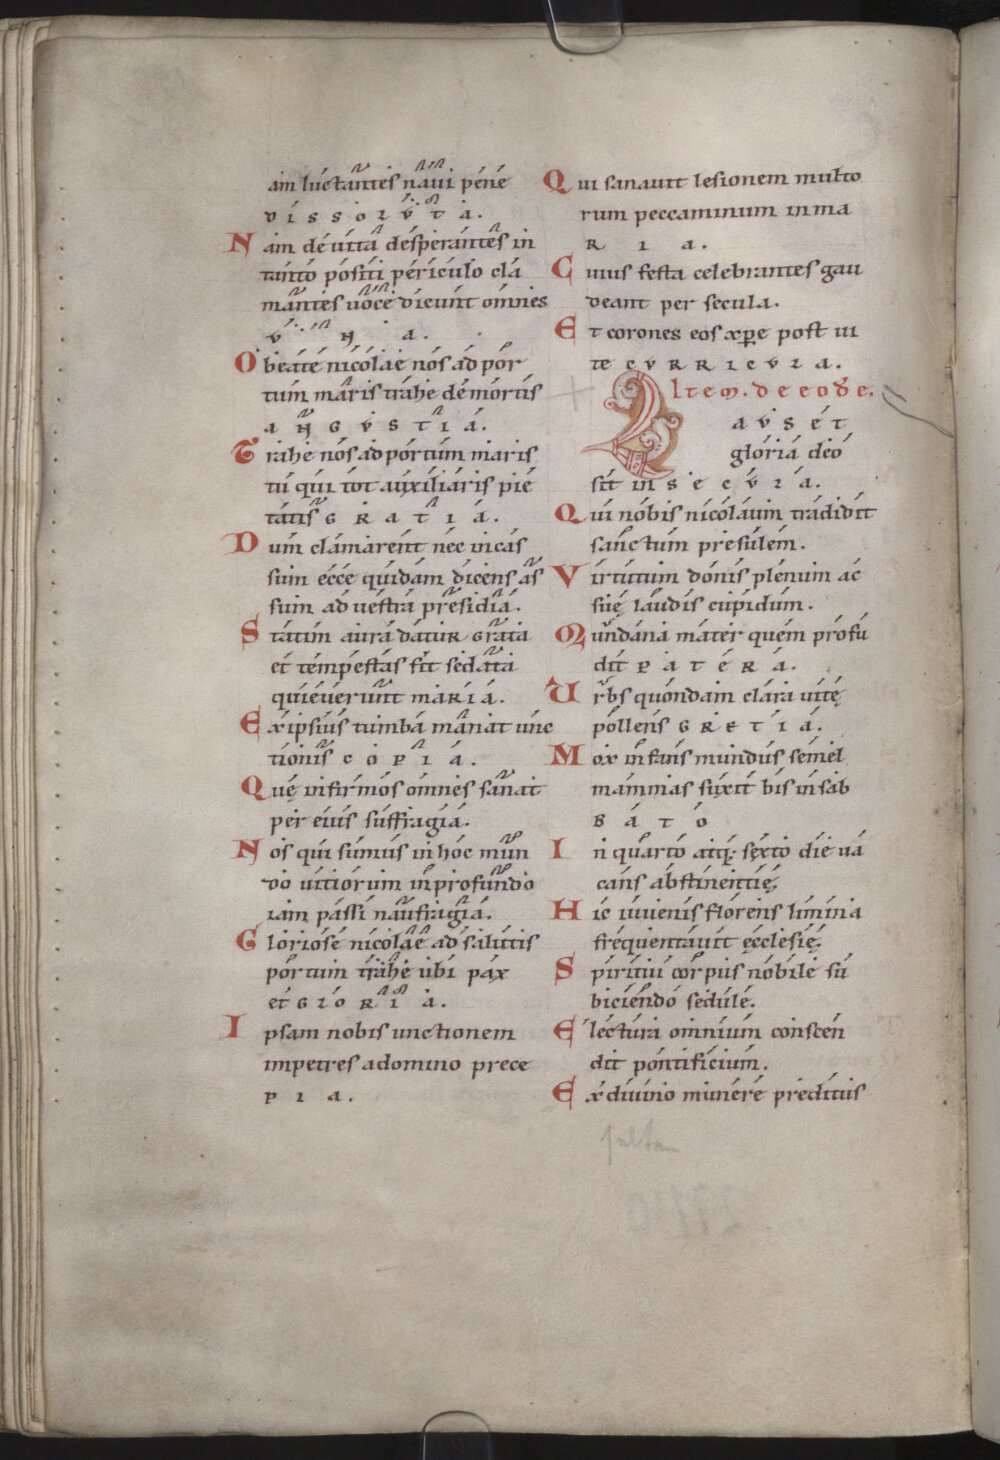 am luctantes naui pene
DISSOLVTA.
Nam de uita desperantes in
tanto positi periculo cla
mantes uoce dicunt omnes
VNA.
O beate nicolae nos ad por
tum maris trahe de mortis
ANGVSTIA.
Trahe nos ad portum maris
tu qui tot auxiliaris pie
tatis GRATIA.
Dum clamarent nec incas
sum ecce quidam dicens as
sum ad uestra presidia.
Statim aura datur grata
et tempestas fit sedata
quieuerunt maria.
Ex ipsius tumba manat unc
tionis COPIA.
Quę infirmos omnes sanat
per eius suffragia.
Nos qui sumus in hoc mun
do uitiorum in profundo
iam passi naufragia.
Gloriose nicolae ad salutis
portum trahe ubi pax
et GLORIA.
Ipsam nobis unctionem
impetres a domino prece
PIA.
Qui sanauit lesionem multo
rum peccaminum in ma
RIA.
Cuius festa celebrantes gau
deant per secula.
Et corones eos xpe post ui
te CVRRICVLA.
Item. de eode.
LAVS ET
gloria deo
sit in SECVLA.
Qui nobis nicolaum tradidit
sanctum presulem.
Virtutum donis plenum ac
suę laudis cupidum.
Mundana mater quem profu
dit PATERA.
Urbs quondam clara uitę
pollens GRETIA.
Mox infans mundus semel
mammas suxit bis in sab
BATO
In quarto atq; sexto die ua
cans abstinentię.
Hic iuuenis florens limina
frequentauit ęcclesię.
Spiritui corpus nobile su
biciendo sedule.
Electura omnium conscen
dit pontificium.
Ex diuino munere preditus